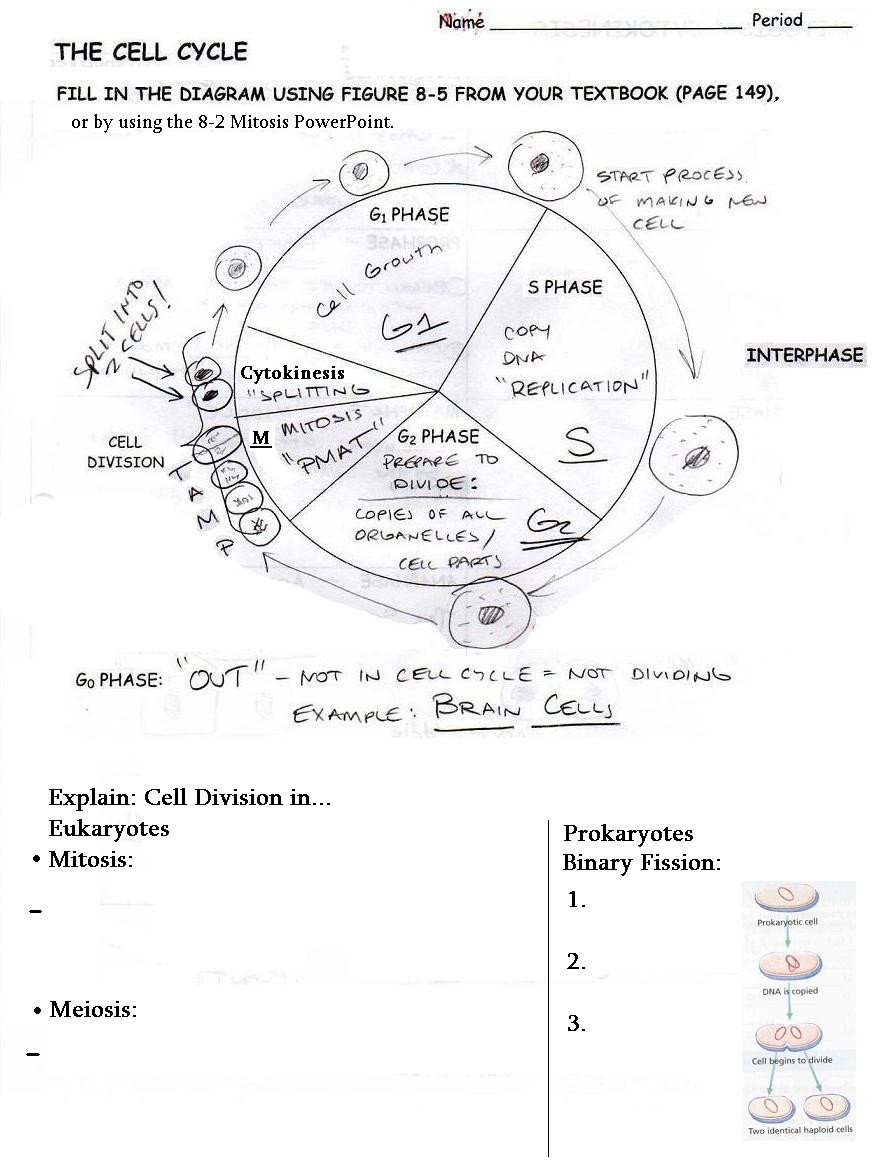 Name ______________ Period ____
THE CELL CYCLE
FILL IN THE DIAGRAM USING FIGURE 8-5 FROM YOUR TEXTBOOK (PAGE 149),
or by using the 8-2 Mitosis PowerPoint.
START PROCESS
OF MAKING NEW
CELL
G1 PHASE
Cell Growth
G1
S PHASE
COPY
DNA
"REPLICATION"
S
INTERPHASE
SPLIT INTO
2 CELLS!
Cytokinesis
"SPLITTING
M MITOSIS
"PMAT"
CELL
DIVISION
T
A
M
P
G2 PHASE
PREPARE TO
DIVIDE:
COPIES OF ALL
ORGANELLES/
CELL PARTS
G2
G0 PHASE: "OUT" - NOT IN CELL CYCLE = NOT DIVIDING
EXAMPLE: BRAIN CELLS
Explain: Cell Division in...
Eukaryotes
• Mitosis:
–
• Meiosis:
–
Prokaryotes
Binary Fission:
1.
2.
3.
Prokaryotic cell
DNA is copied
Cell begins to divide
Two identical haploid cells